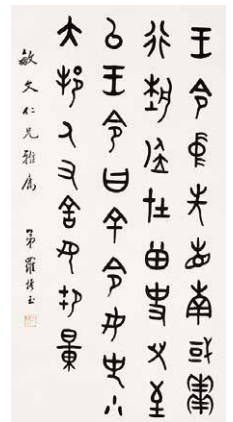 王令中先省南或貫
行埶应在曾史兒至
以王令曰余令女史小
大邦厥又舍女邦量
敏文仁兄雅屬 弟羅振玉